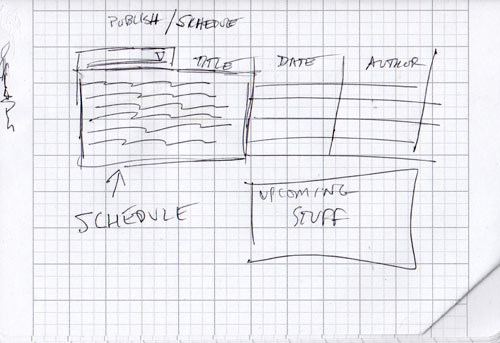 PUBLISH / SCHEDULE
TITLE DATE AUTHOR
SCHEDULE
UPCOMING
STUFF